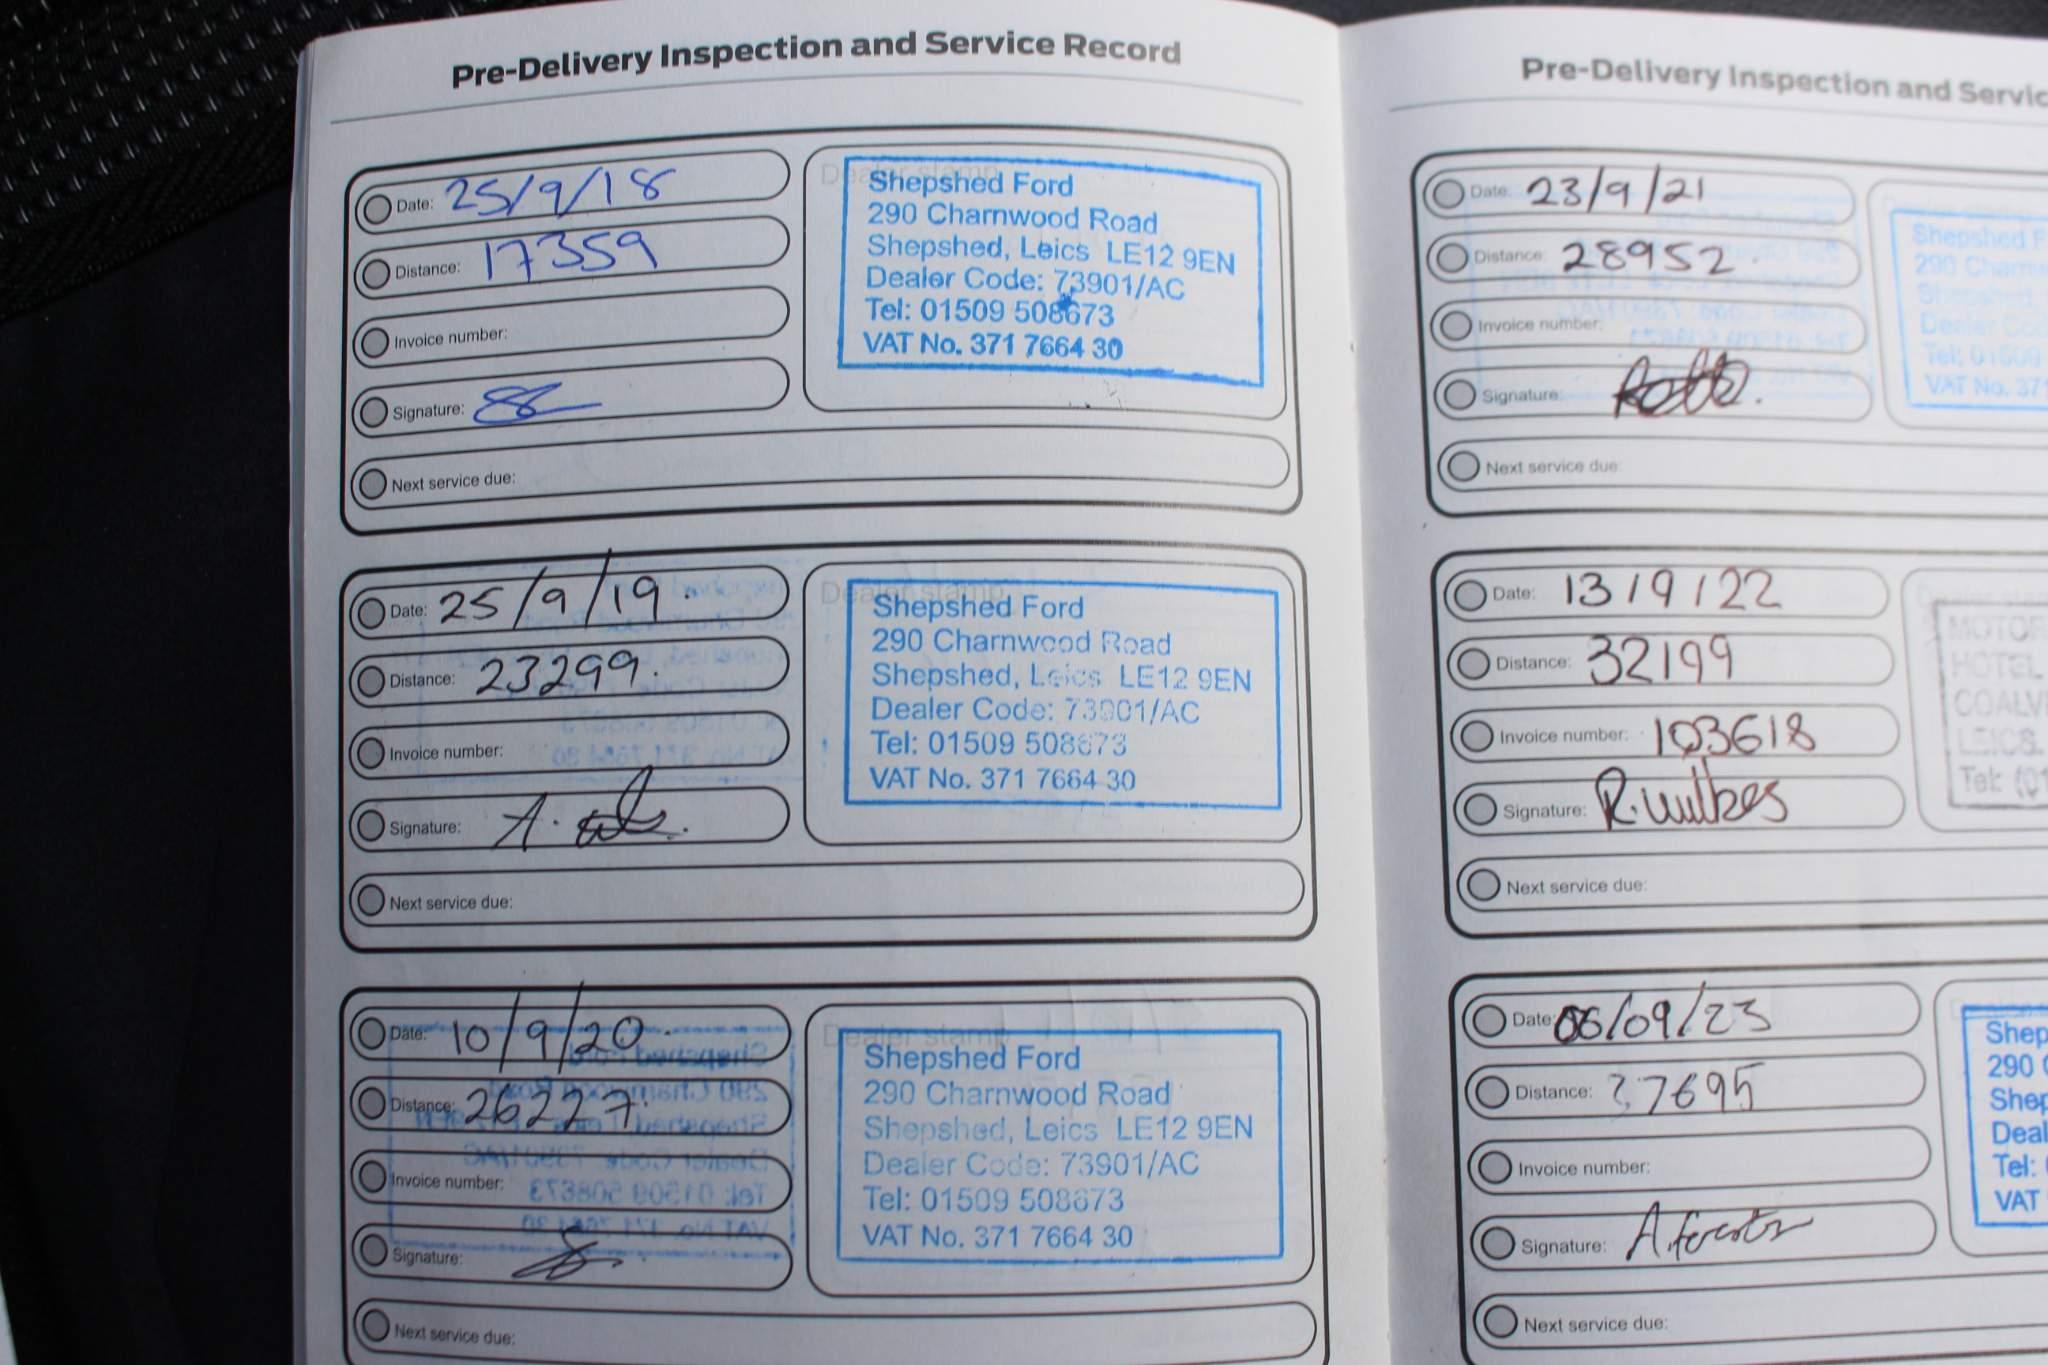 Pre-Delivery Inspection and Service Record
Date: 25/9/18
Distance: 17359
Invoice number:
Signature:
Next service due:
Dealer stamp
Shepshed Ford
290 Charnwood Road
Shepshed, Leics LE12 9EN
Dealer Code: 73901/AC
Tel: 01509 508673
VAT No. 371 7664 30
Date: 25/9/19.
Distance: 23299.
Invoice number:
Signature: A.
Next service due:
Dealer stamp
Shepshed Ford
290 Charnwood Road
Shepshed, Leics LE12 9EN
Dealer Code: 73901/AC
Tel: 01509 508673
VAT No. 371 7664 30
Date: 10/9/20.
Distance: 26227.
Invoice number:
Signature:
Next service due:
Dealer stamp
Shepshed Ford
290 Charnwood Road
Shepshed, Leics LE12 9EN
Dealer Code: 73901/AC
Tel: 01509 508673
VAT No. 371 7664 30
Pre-Delivery Inspection and Servic
Date: 23/9/21
Distance: 28952
Invoice number:
Signature:
Next service due:
Shepshed F
290 Charnw
Shepshed,
Dealer Cod
Tel: 01509
VAT No. 371
Date: 13/9/22
Distance: 32199
Invoice number: 103618
Signature: R. Wilkes
Next service due:
MOTOR
HOTEL
COALV
LEICS.
Tel: (01
Date: 06/09/23
Distance: 37695
Invoice number:
Signature: A.
Next service due:
Shep
290
Shep
Deal
Tel:
VAT